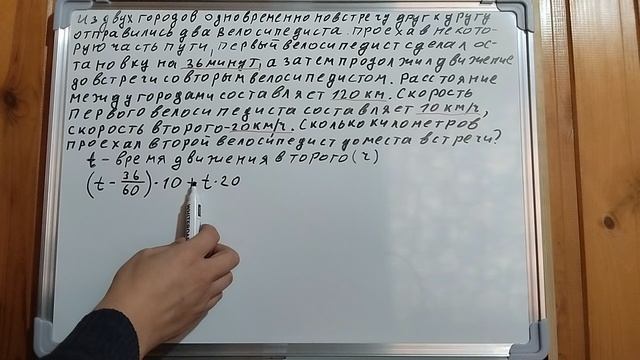 Из двух городов одновременно навстречу друг к другу
отправились два велосипедиста. Проехав некото-
рую часть пути, первый велосипедист сделал ос-
тановку на 36 минут, а затем продолжил движение
до встречи со вторым велосипедистом. Расстояние
между городами составляет 120 км. Скорость
первого велосипедиста составляет 10 км/ч,
скорость второго-20 км/ч. Сколько километров
проехал второй велосипедист до места встречи?
t - время движения второго (ч)
(t - 36/60) · 10 + t · 20